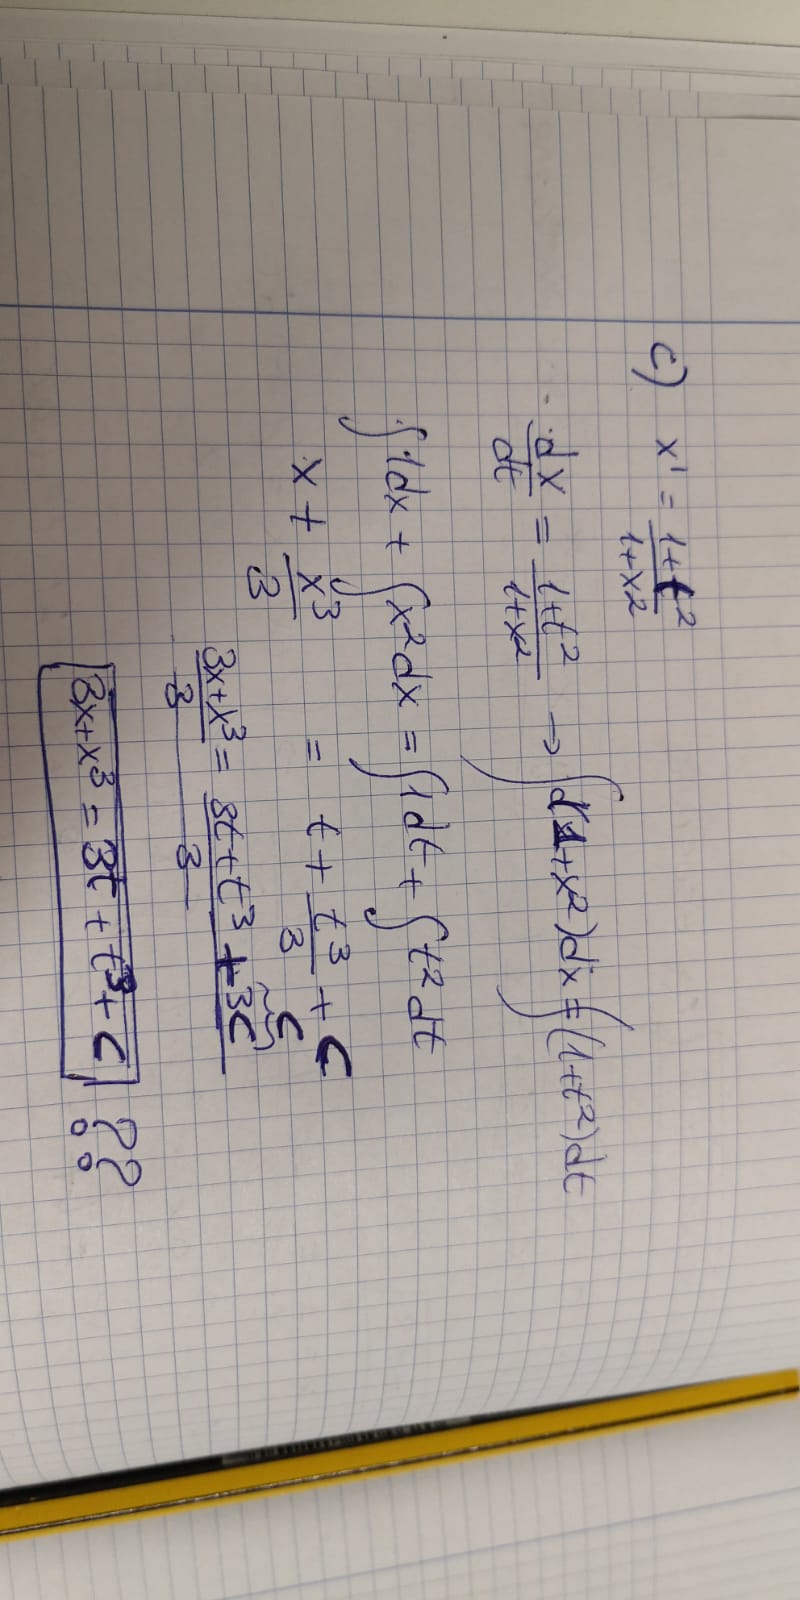 c) x' = \frac{1+t^2}{1+x^2}
\frac{dx}{dt} = \frac{1+t^2}{1+x^2} → ∫(1+x^2)dx = ∫(1+t^2)dt
∫1dx + ∫x^2dx = ∫1dt + ∫t^2dt
x + \frac{x^3}{3} = t + \frac{t^3}{3} + C
\frac{3x+x^3}{3} = \frac{3t+t^3+3C}{3}
C
3x+x^3 = 3t + t^3 + C ??